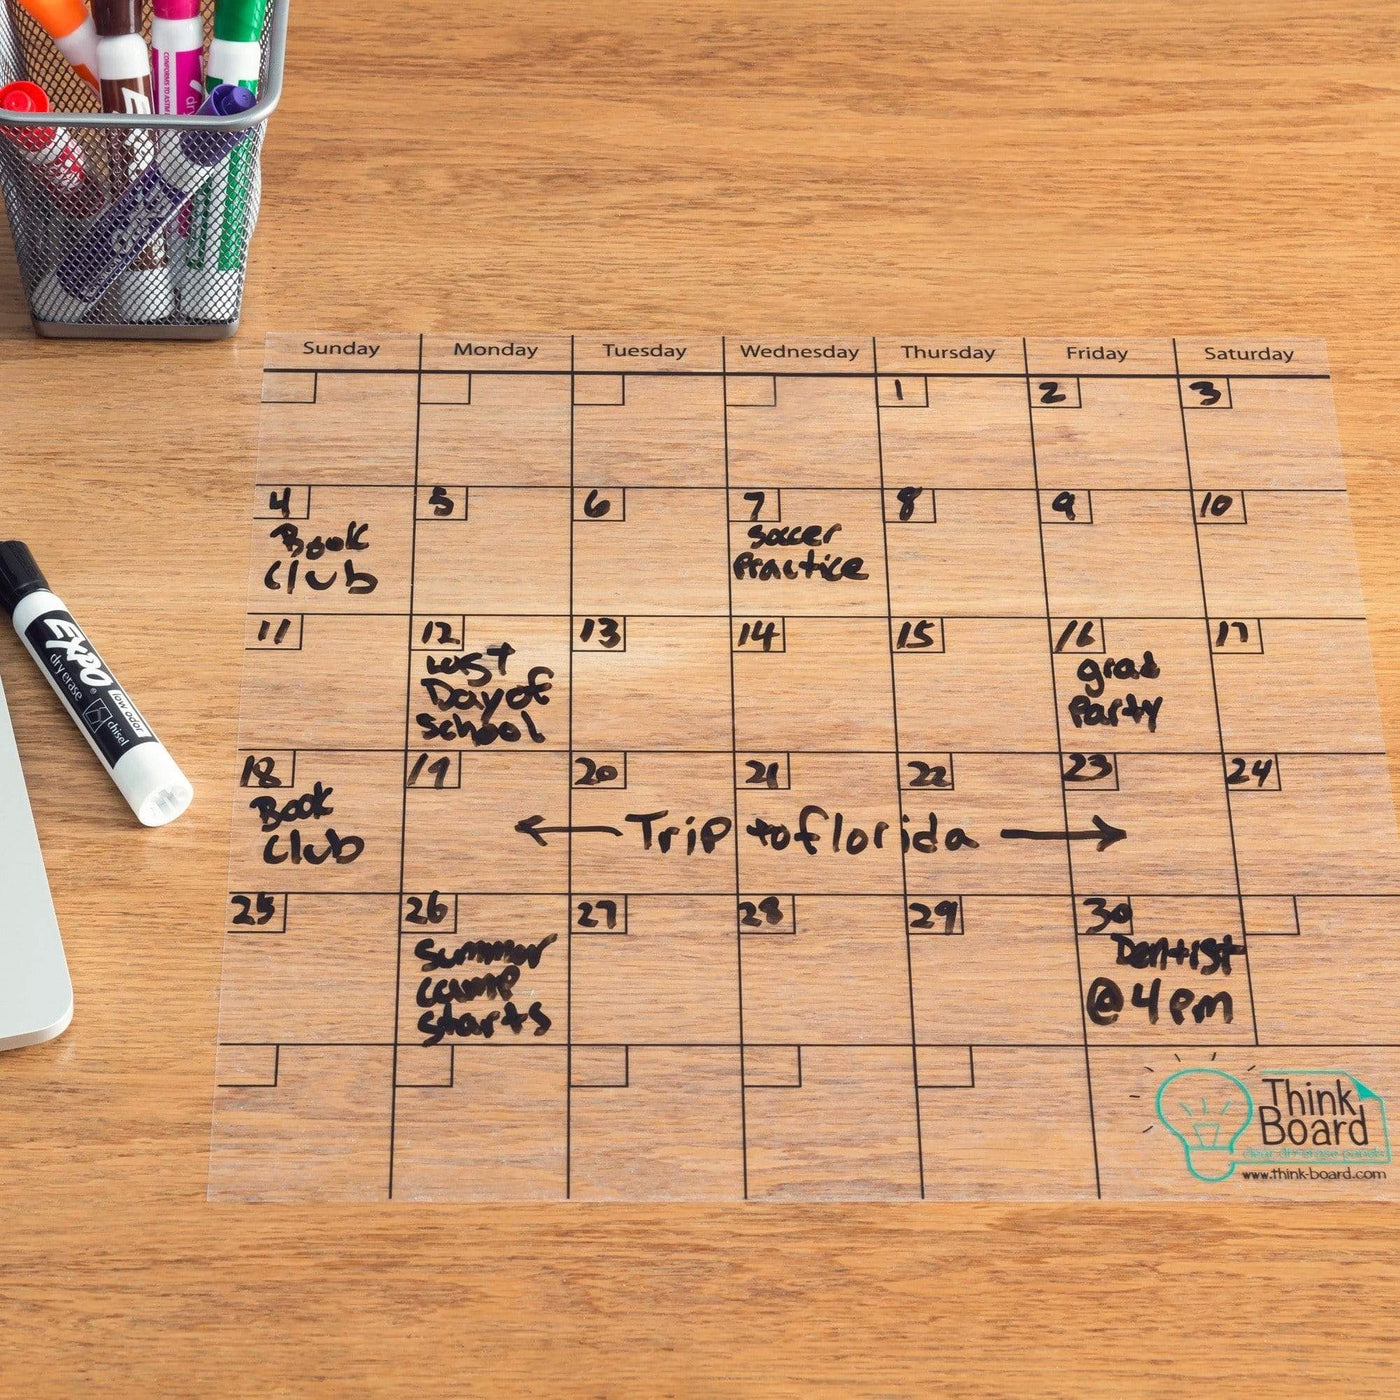 Sunday Monday Tuesday Wednesday Thursday Friday Saturday
1 2 3
4 5 6 7 8 9 10
Book
Club
soccer
Practice
11 12 13 14 15 16 17
Last
Day of
School
grad
Party
18 19 20 21 22 23 24
Book
Club
Trip to florida
25 26 27 28 29 30
Summer
camp
starts
Dentist
@ 4 pm
Think
Board
clear dry erase panels
www.think-board.com
EXPO
dry erase
low odor
chisel
CONFORMS TO ASTM